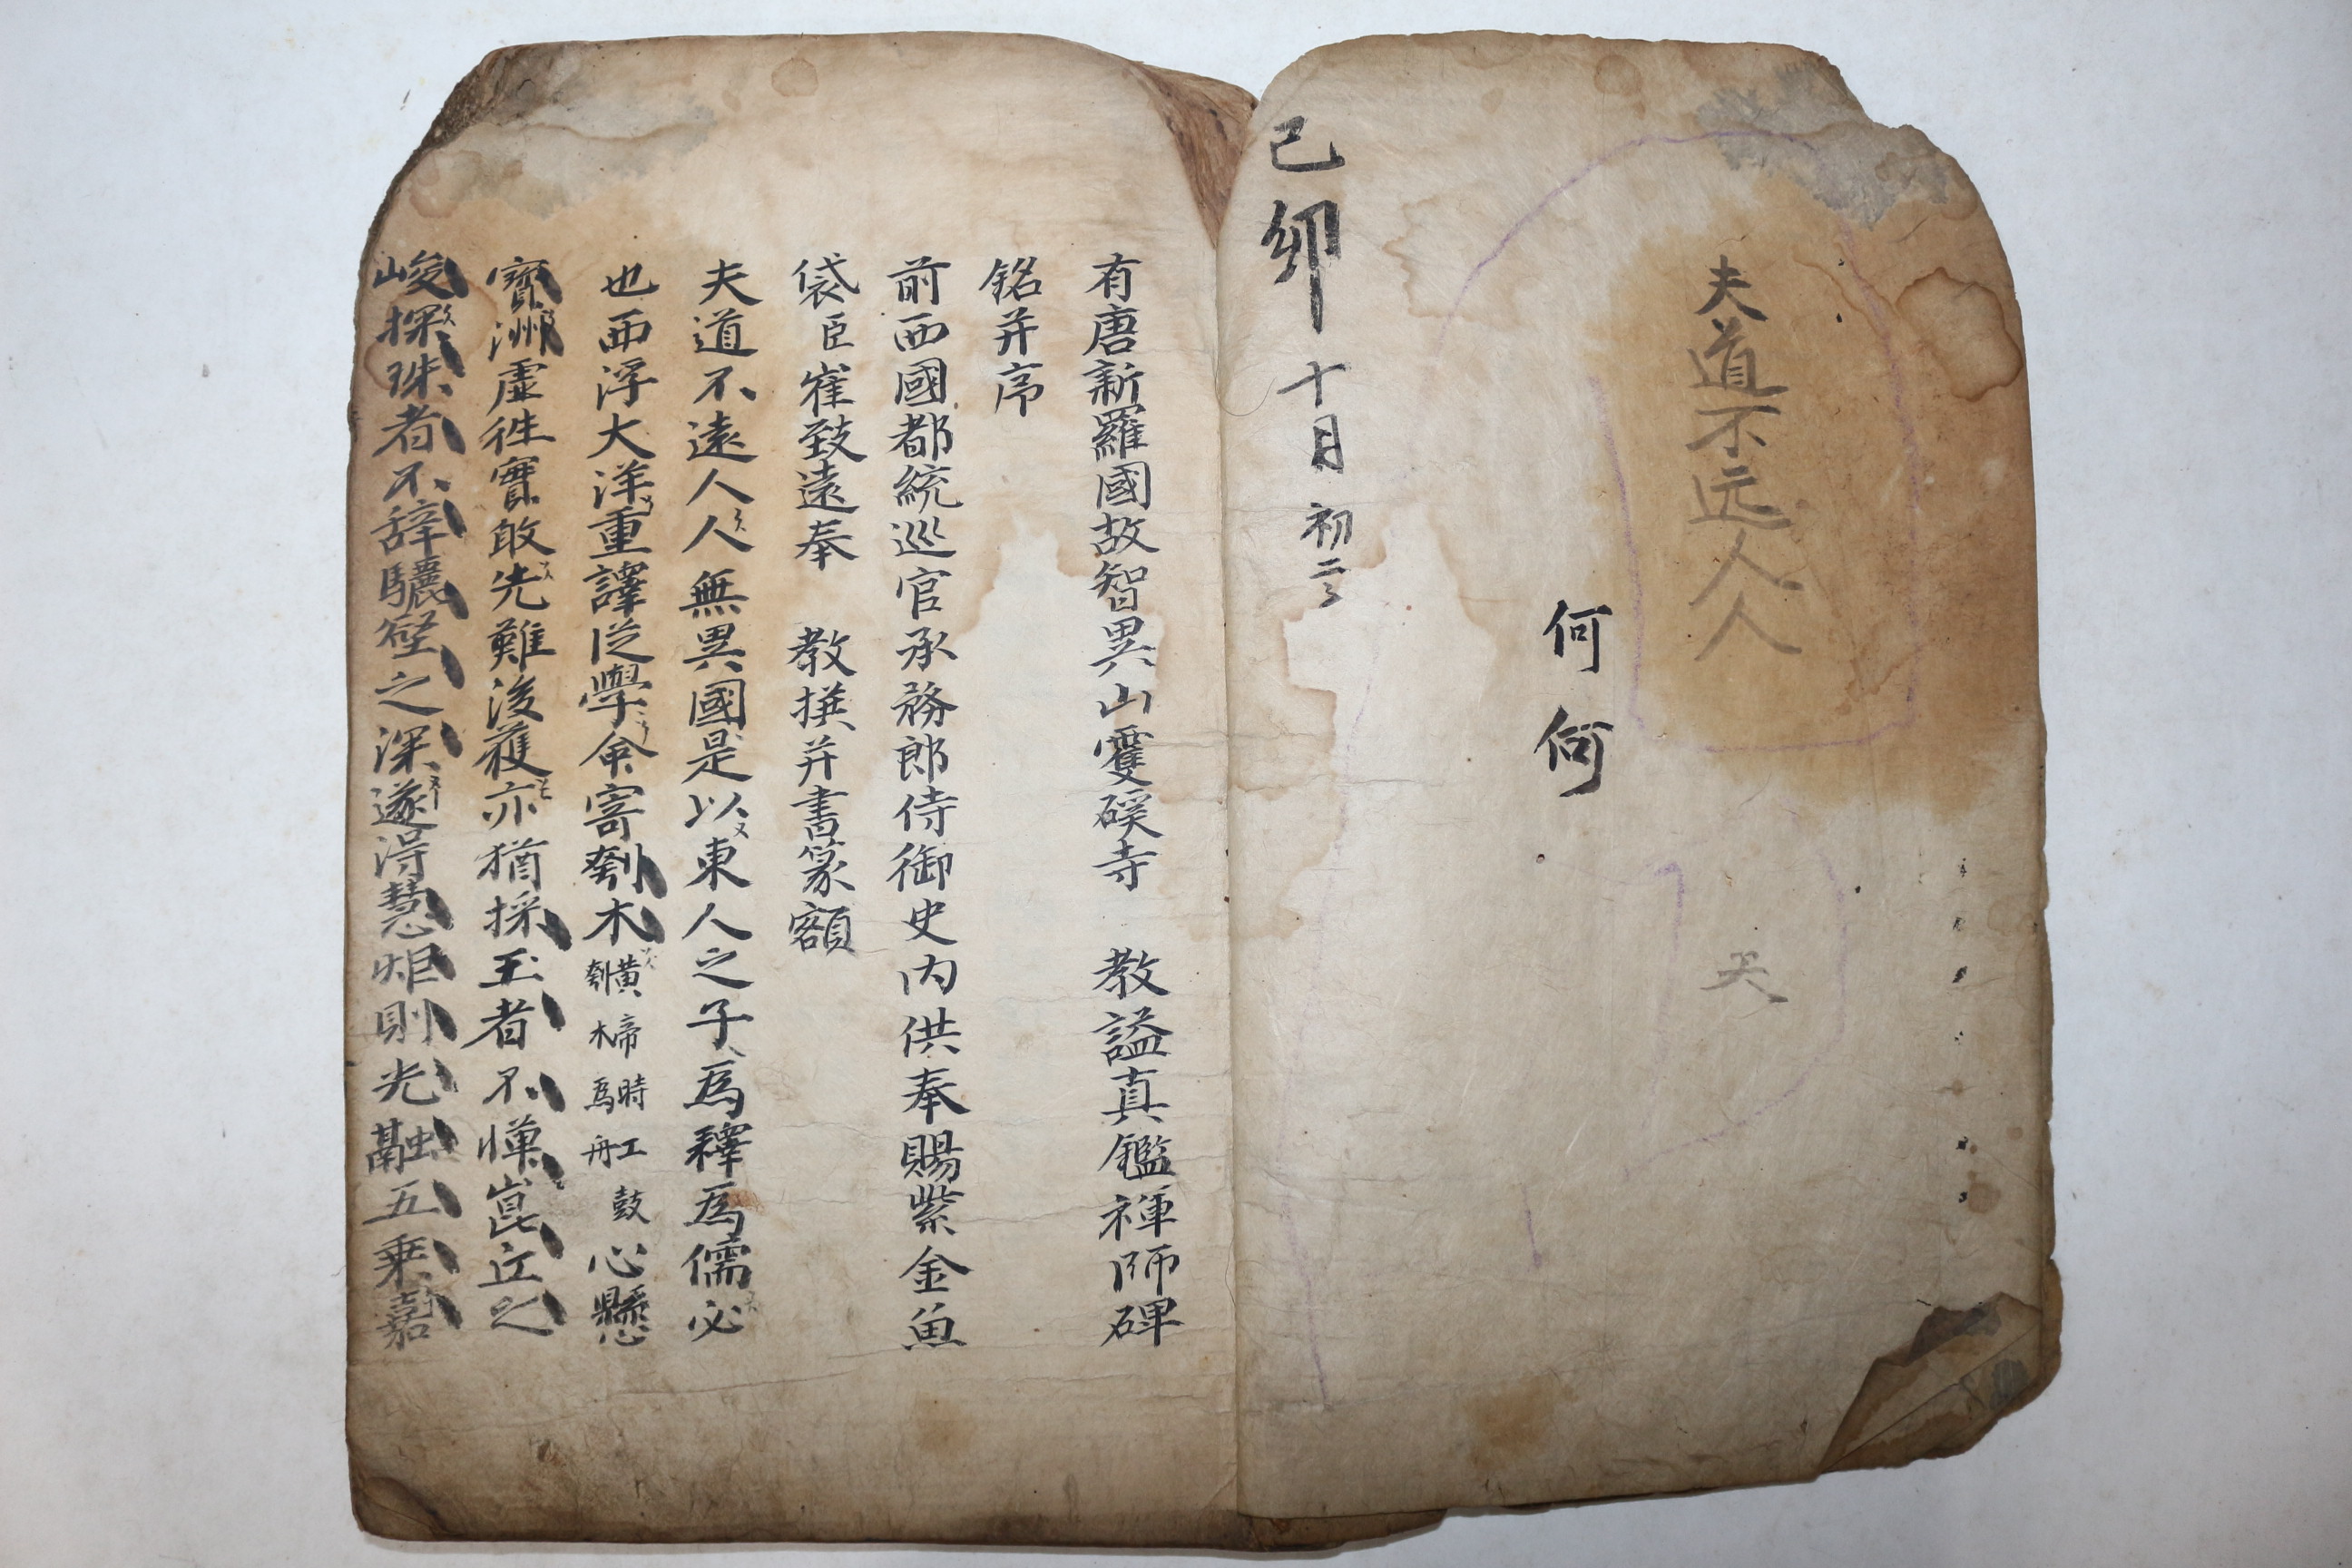 夫道不远人人
天
何何
己卯十月初二
有唐新羅國故智異山雙磎寺 教謚真鑑禪師碑
銘并序
前西國都統巡官承務郎侍御史内供奉賜紫金魚
袋臣崔致遠奉 教撰并書篆額
夫道不遠人人無異國是以東人之子爲釋爲儒必
也西浮大洋重譯從學命寄刳木黃帝時工鼓刳木爲舟心懸
寶洲虛徃實敢先難後獲亦猶採玉者不憚崑丘之
峻探珠者不辞驪壑之深遂得慧炬則光融五乗嘉